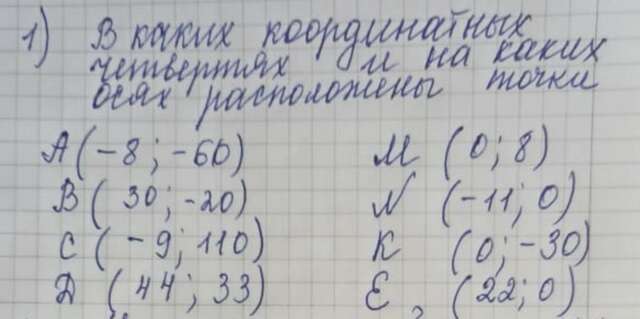 1) В каких координатных
четвертях и на каких
осях расположены точки
А (-8; -60) М (0; 8)
В (30; -20) N (-11; 0)
С (-9; 110) К (0; -30)
Д (44; 33) Е (22; 0)